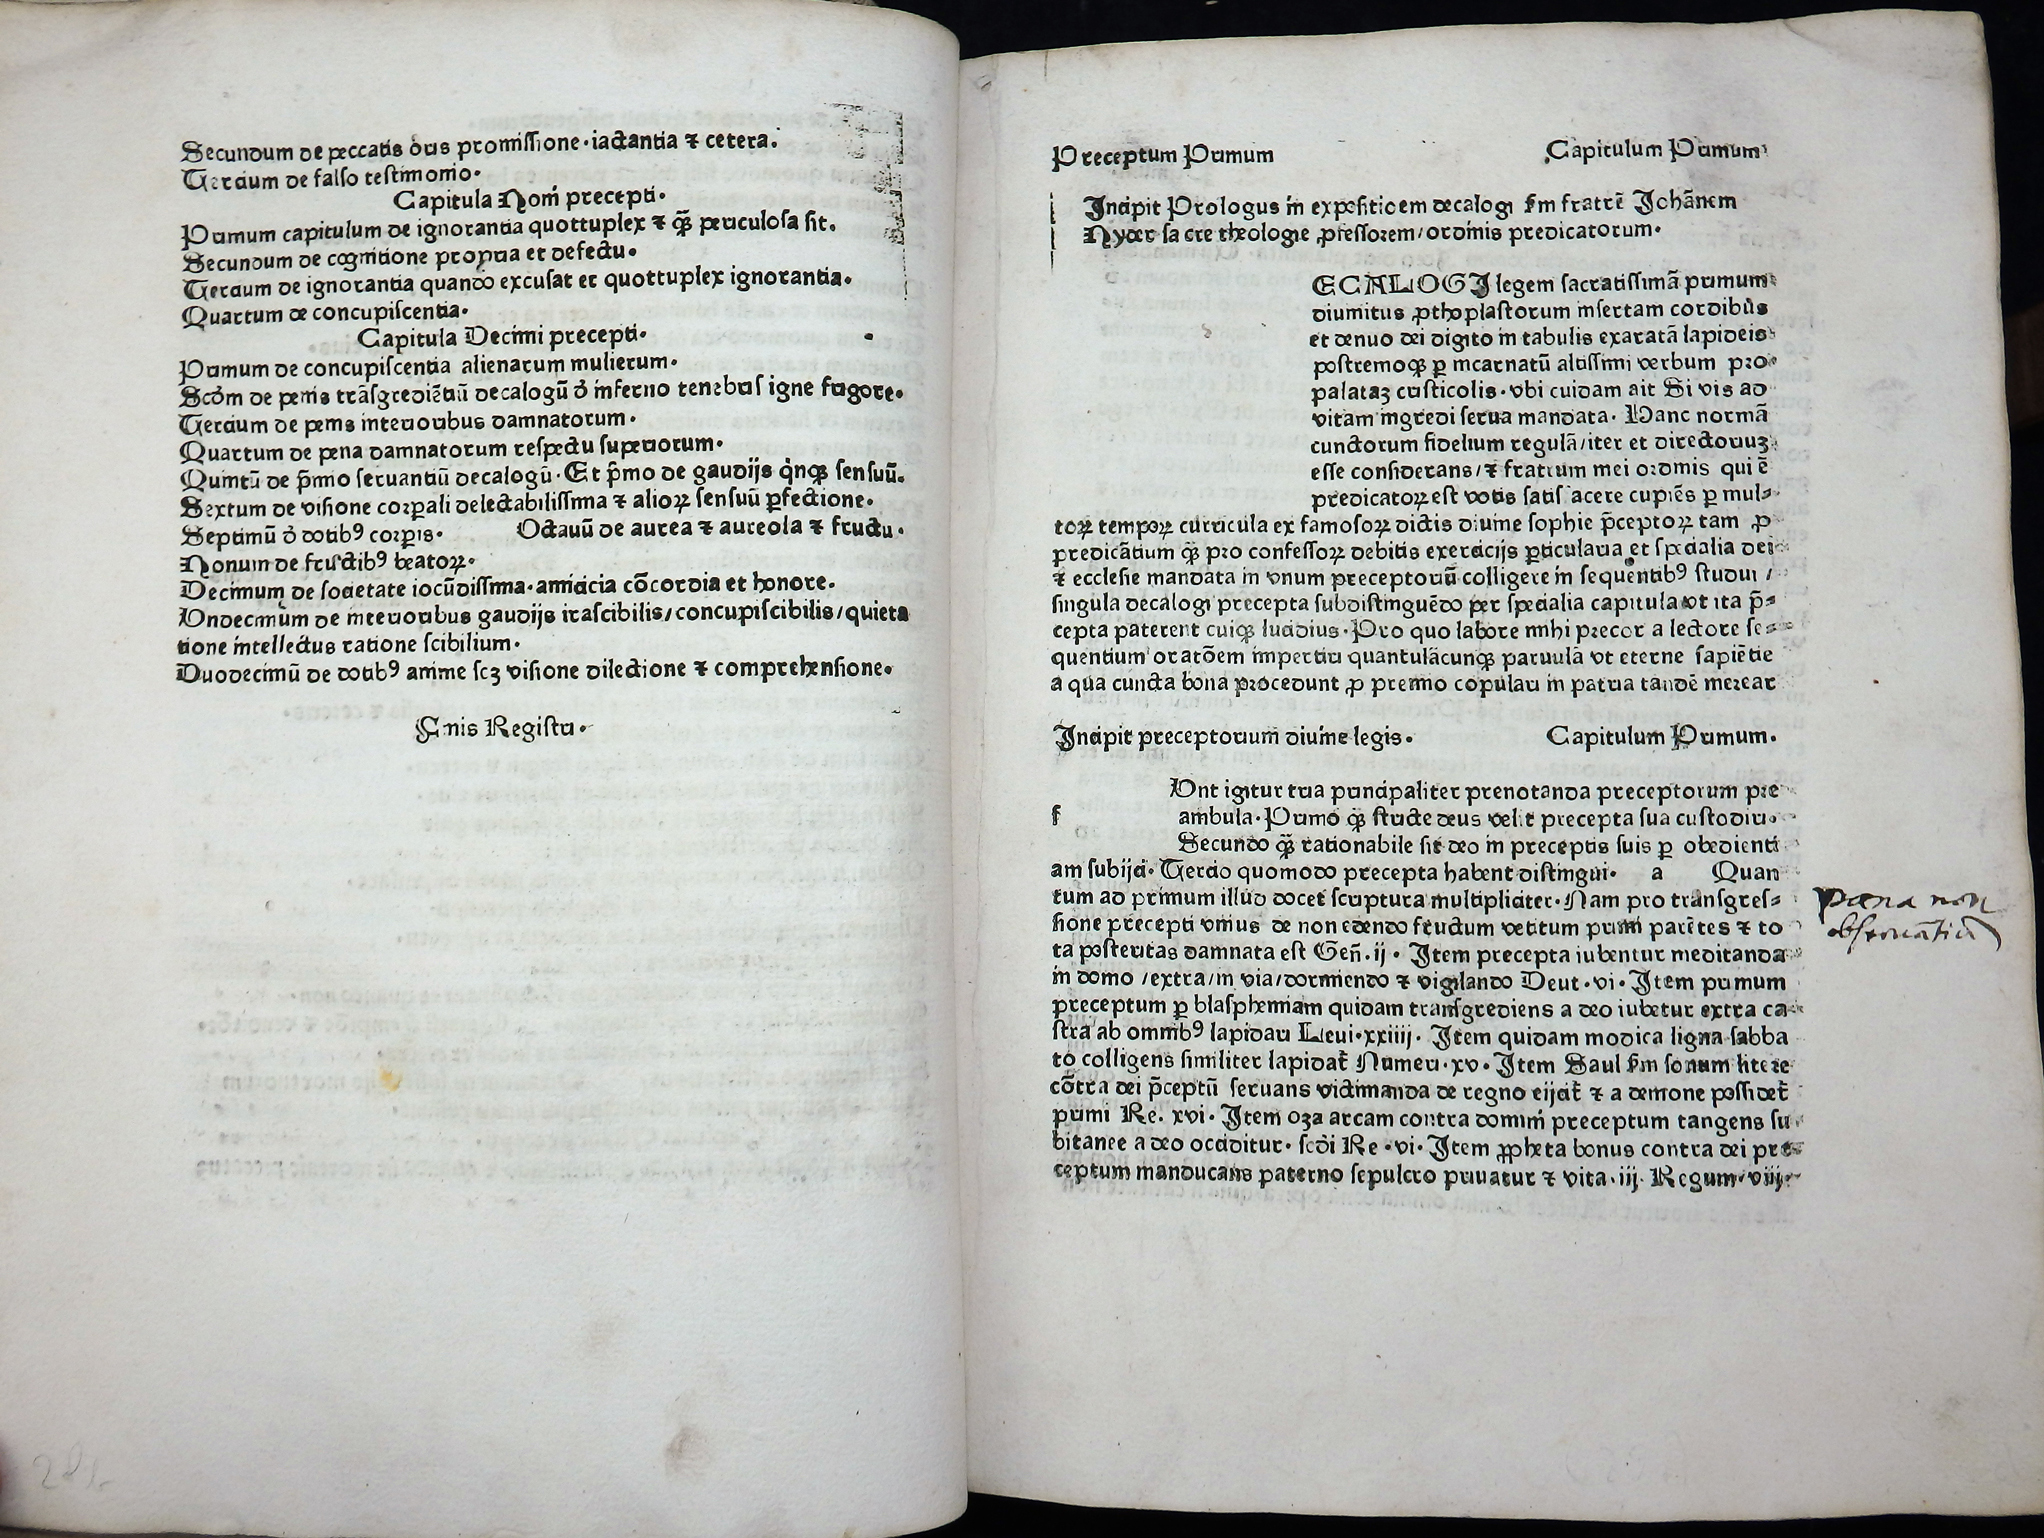 Secundum de peccatis oris promissione·iactantia ⁊ cetera.
Tercium de falso testimonio·
Capitula Noni precepti·
Primum capitulum de ignorantia quottuplex ⁊ qꝫ̃ periculosa sit.
Secundum de cognitione propria et defectu·
Tercium de ignorantia quando excusat et quottuplex ignorantia·
Quartum de concupiscentia·
Capitula Decimi precepti·
Primum de concupiscentia alienarum mulierum·
Scdm de penis trãsgrediẽtiũ decalogũ ď inferno tenebris igne frigore·
Tercium de penis interioribus damnatorum·
Quartum de pena damnatorum respectu superiorum·
Quintũ de p̃mio seruantiũ decalogũ·Et p̃mo de gaudijs qͥnqꝫ sensuũ.
Sextum de visione corꝑali delectabilissima ⁊ alioꝝ sensuũ ꝑfectione·
Septimũ ď dotibꝰ corꝑis· Octauũ de aurea ⁊ aureola ⁊ fructu·
Nonum de fructibꝰ beatoꝝ·
Decimum de societate iocũdissima·amicicia cõcordia et honore·
Vndecimum de interioribus gaudijs irascibilis/concupiscibilis/quieta
tione intellectus ratione scibilium·
Duodecimũ de dotibꝰ anime scꝫ visione dilectione ⁊ comprehensione·
Finis Registri·
Preceptum Primum Capitulum Primum
Incipit Prologus in expositioem decalogi ẜm fratrẽ Johãnem
Nyder sacre theologie ꝓfessorem/ordinis predicatorum·
ECALOGI legem sacratissimã primum
diuinitus ꝓthoplastorum insertam cordibus
et denuo dei digito in tabulis exaratã lapideis
postremoqꝫ ꝑ incarnatũ altissimi verbum pro
palataꝫ cristicolis·vbi cuidam ait Si vis ad
vitam ingredi serua mandata· Hanc normã
cunctorum fidelium regulã/iter et directoriuꝫ
esse considerans/⁊ fratrum mei ordinis qui ẽ
predicatoꝝ est votis satisfacere cupiẽs ꝑ mul⸗
toꝝ tempoꝝ curricula ex famosoꝝ dictis diuine sophie p̃ceptoꝝ tam ꝓ
predicãtium qꝫ̃ pro confessoꝝ debitis exercicijs ꝑticularia et specialia dei
⁊ ecclesie mandata in vnum preceptoriũ colligere in sequentibꝰ studui /
singula decalogi precepta subdistinguẽdo per specialia capitula vt ita p̃⸗
cepta paterent cuiqꝫ lucidius·Pro quo labore mihi precor a lectore se⸗
quentium oratõem impertiri quantulãcunqꝫ paruulã vt eterne sapiẽtie
a qua cuncta bona procedunt ꝓ premio copulari in patria tandẽ merear
Incipit preceptorium diuine legis· Capitulum Primum.
Vnt igitur tria principaliter prenotanda preceptorum pre
f ambula·Primo qꝫ̃ stricte deus velit precepta sua custodiri·
Secundo qꝫ̃ rationabile sit deo in preceptis suis ꝑ obedienti
am subijci· Tercio quomodo precepta habent distingui· a Quan
tum ad primum illud docet scriptura multipliciter·Nam pro transgres⸗
sione precepti vnius de non edendo fructum vetitum primi parẽtes ⁊ to
ta posteritas damnata est Geñ.ij· Item precepta iubentur meditanda
in domo /extra/in via/dormiendo ⁊ vigilando Deut·vi·Item primum
preceptum ꝑ blasphemiam quidam transgrediens a deo iubetur extra ca⸗
stra ab omnibꝰ lapidari Leui·xxiiij· Item quidam modica ligna sabba
to colligens similiter lapidat̃ Numeri·xv· Item Saul ẜm sonum litere
cõtra dei p̃ceptũ seruans victimanda de regno eijcit̃ ⁊ a demone possidet̃
primi Re. xvi· Item oza arcam contra domini preceptum tangens su
bitanee a deo occiditur· scdi Re·vi·Item ꝓpheta bonus contra dei pre⸗
ceptum manducans paterno sepulcro priuatur ⁊ vita·iij· Regum·viij·
pœna non
obseruãtiũ